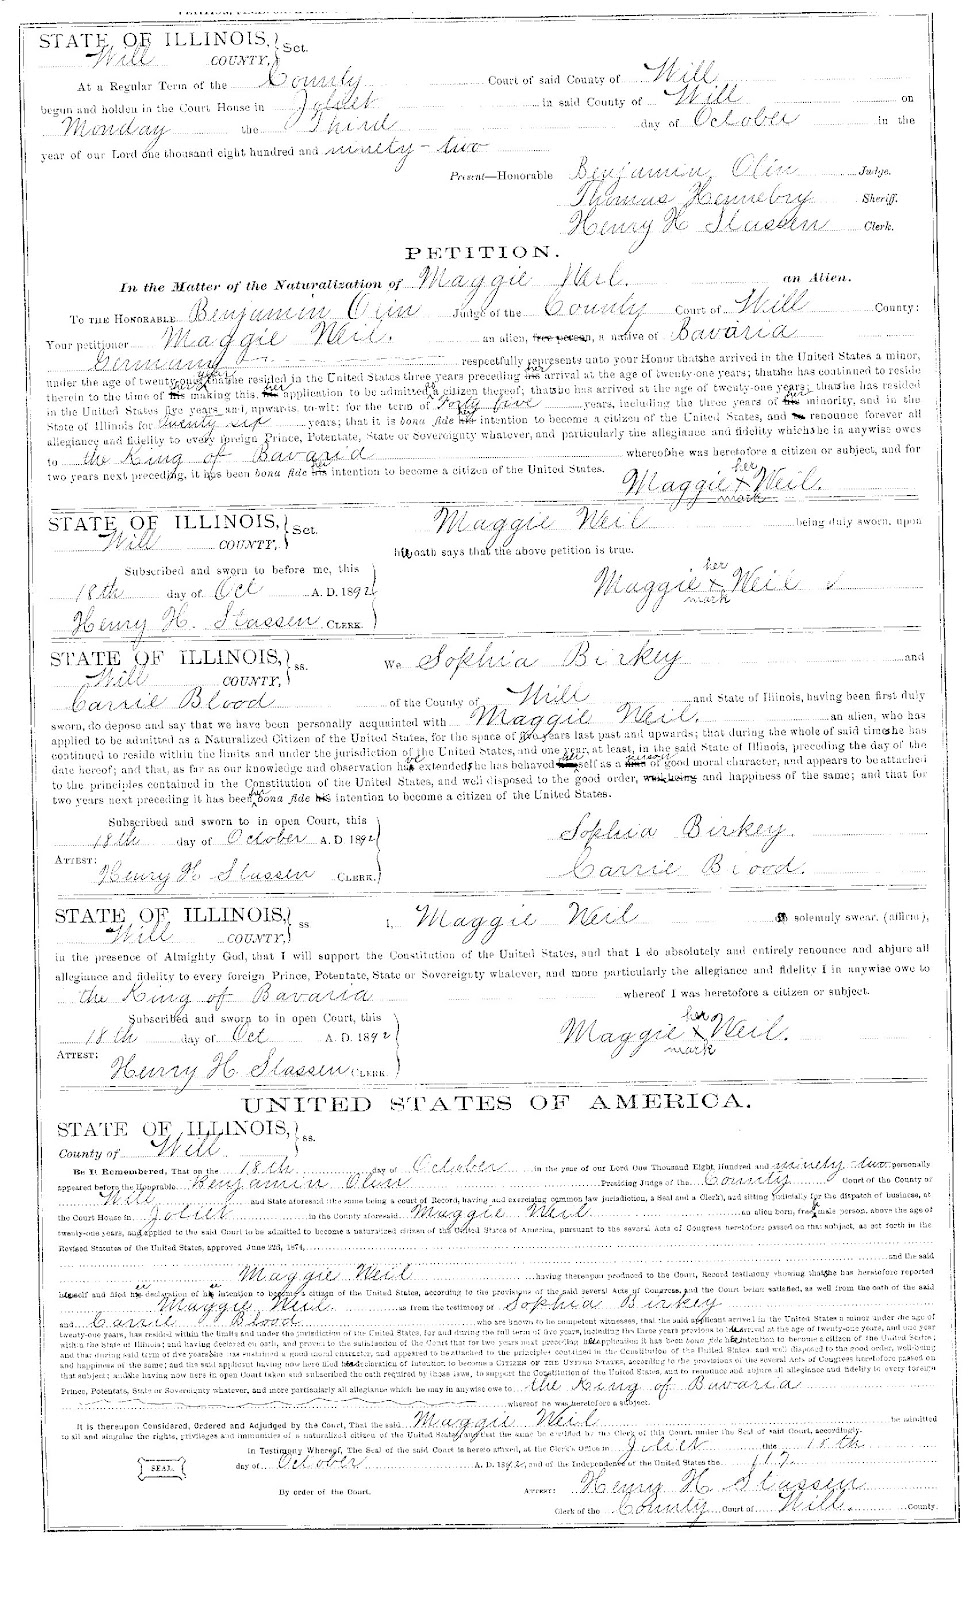 STATE OF ILLINOIS, } Sct.
Will COUNTY,
At a Regular Term of the County Court of said County of Will
begun and holden in the Court House in Joliet in said County of Will on
Monday the Third day of October in the
year of our Lord one thousand eight hundred and ninety-two
Present—Honorable Benjamin Olin Judge.
Thomas Hennebry Sheriff.
Henry H Stassen Clerk.
PETITION.
In the Matter of the Naturalization of Maggie Weil. an Alien.
TO THE HONORABLE Benjamin Olin Judge of the County Court of Will County:
Your petitioner Maggie Weil. an alien, free person, a native of Bavaria
Germany respectfully represents unto your Honor that she arrived in the United States a minor,
under the age of twenty-one years that she resided in the United States three years preceding his her arrival at the age of twenty-one years; that she has continued to reside
therein to the time of his her making this, his her application to be admitted as citizen thereof; that she has arrived at the age of twenty-one years; that she has resided
in the United States five years and upwards, to-wit: for the term of Forty five years, including the three years of his her minority, and in the
State of Illinois for twenty six years; that it is bona fide his her intention to become a citizen of the United States, and to renounce forever all
allegiance and fidelity to every foreign Prince, Potentate, State or Sovereignty whatever, and particularly the allegiance and fidelity which she in anywise owes
to the King of Bavaria whereof she was heretofore a citizen or subject, and for
two years next preceding, it has been bona fide his her intention to become a citizen of the United States.
her
Maggie x Weil.
mark
STATE OF ILLINOIS, } Sct. Maggie Weil being duly sworn, upon
Will COUNTY,
her oath says that the above petition is true.
Subscribed and sworn to before me, this
her
18th day of Oct A. D. 1892 Maggie x Weil
mark
Henry H. Stassen CLERK.
STATE OF ILLINOIS, } ss. We Sophia Birkey and
Will COUNTY,
Carrie Blood of the County of Will and State of Illinois, having been first duly
sworn, do depose and say that we have been personally acquainted with Maggie Weil. an alien, who has
applied to be admitted as a Naturalized Citizen of the United States, for the space of years last past and upwards; that during the whole of said time she has
continued to reside within the limits and under the jurisdiction of the United States, and one year, at least, in the said State of Illinois, preceding the day of the
date hereof; and that, as far as our knowledge and observation have extended she has behaved herself as a person of good moral character, and appears to be attached
to the principles contained in the Constitution of the United States, and well disposed to the good order, well-being and happiness of the same; and that for
two years next preceding it has been her bona fide his intention to become a citizen of the United States.
Subscribed and sworn to in open Court, this
18th day of October A. D. 1892 Sophia Birkey.
ATTEST: Carrie Blood.
Henry H. Stassen CLERK.
STATE OF ILLINOIS, } ss I, Maggie Weil do solemnly swear, (affirm),
Will COUNTY,
in the presence of Almighty God, that I will support the Constitution of the United States, and that I do absolutely and entirely renounce and abjure all
allegiance and fidelity to every foreign Prince, Potentate, State or Sovereignty whatever, and more particularly the allegiance and fidelity I in anywise owe to
the King of Bavaria whereof I was heretofore a citizen or subject.
Subscribed and sworn to in open Court, this
her
18th day of Oct A. D. 1892 Maggie x Weil.
mark
ATTEST:
Henry H. Stassen CLERK.
UNITED STATES OF AMERICA.
STATE OF ILLINOIS, } ss.
County of Will
Be It Remembered, That on the 18th day of October in the year of our Lord One Thousand Eight Hundred and ninety-two personally
appeared before the Honorable Benjamin Olin Presiding Judge of the County Court of the County of
Will and State aforesaid (the same being a court of Record, having and exercising common law jurisdiction, a Seal and a Clerk), and sitting judicially for the dispatch of business, at
the Court House in Joliet in the County aforesaid Maggie Weil an alien born, free male person, above the age of
twenty-one years, and applied to the said Court to be admitted to become a naturalized citizen of the United States of America, pursuant to the several Acts of Congress heretofore passed on that subject, as set forth in the
Revised Statutes of the United States, approved June 22d, 1874,
and the said
Maggie Weil having thereupon produced to the Court, Record testimony showing that she has heretofore reported
herself and filed her declaration of her intention to become a citizen of the United States, according to the provisions of the said several Acts of Congress, and the Court being satisfied, as well from the oath of the said
Maggie Weil as from the testimony of Sophia Birkey
and Carrie Blood who are known to be competent witnesses, that the said applicant arrived in the United States a minor under the age of
twenty-one years, has resided within the limits and under the jurisdiction of the United States, for and during the full term of five years, including the three years previous to her arrival at the age of twenty-one years, and one year
within the State of Illinois; and having declared on oath, and proven to the satisfaction of the Court that for two years next preceding her application it has been bona fide her intention to become a citizen of the United States;
and that during said term of five years she has sustained a good moral character, and appeared to be attached to the principles contained in the Constitution of the United States and well disposed to the good order, well-being
and happiness of the same; and the said applicant having now here filed her declaration of intention to become a CITIZEN OF THE UNITED STATES, according to the provisions of the several Acts of Congress heretofore passed on
that subject; and she having now here in open Court taken and subscribed the oath required by those laws, to support the Constitution of the United States, and to renounce and abjure all allegiance and fidelity to every foreign
Prince, Potentates, State or Sovereignty whatever, and more particularly all allegiance which he may in anywise owe to the King of Bavaria
whereof he was heretofore a subject.
It is thereupon Considered, Ordered and Adjudged by the Court, That the said Maggie Weil be admitted
to all and singular the rights, privileges and immunities of a naturalized citizen of the United States, and that the same be certified by the Clerk of this Court, under the Seal of said Court, accordingly.
In Testimony Whereof, The Seal of the said Court is hereto affixed, at the Clerk's Office in Joliet this 18th
SEAL. day of October A. D. 1892, and of the Independence of the United States the 117.
By order of the Court. ATTEST: Henry H. Stassen
Clerk of the County Court of Will. County.